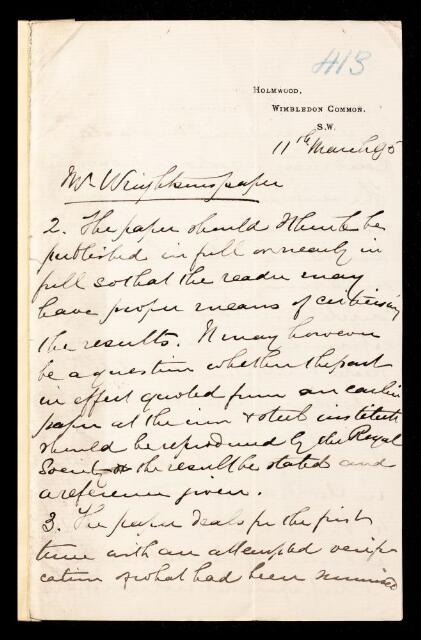 413
HOLMWOOD,
WIMBLEDON COMMON.
S.W.
11th March 95
Mr Wrightson's paper
2. The paper should I think be
published in full or nearly in
full so that the reader may
have proper means of criticising
the results. It may however
be a question whether the part
in effect quoted from an earlier
paper at the iron & steel institute
should be reproduced by the Royal
Society or the result be stated and
a reference given.
3. The paper deals for the first
time with an attempted verifi-
cation of what had been surmised